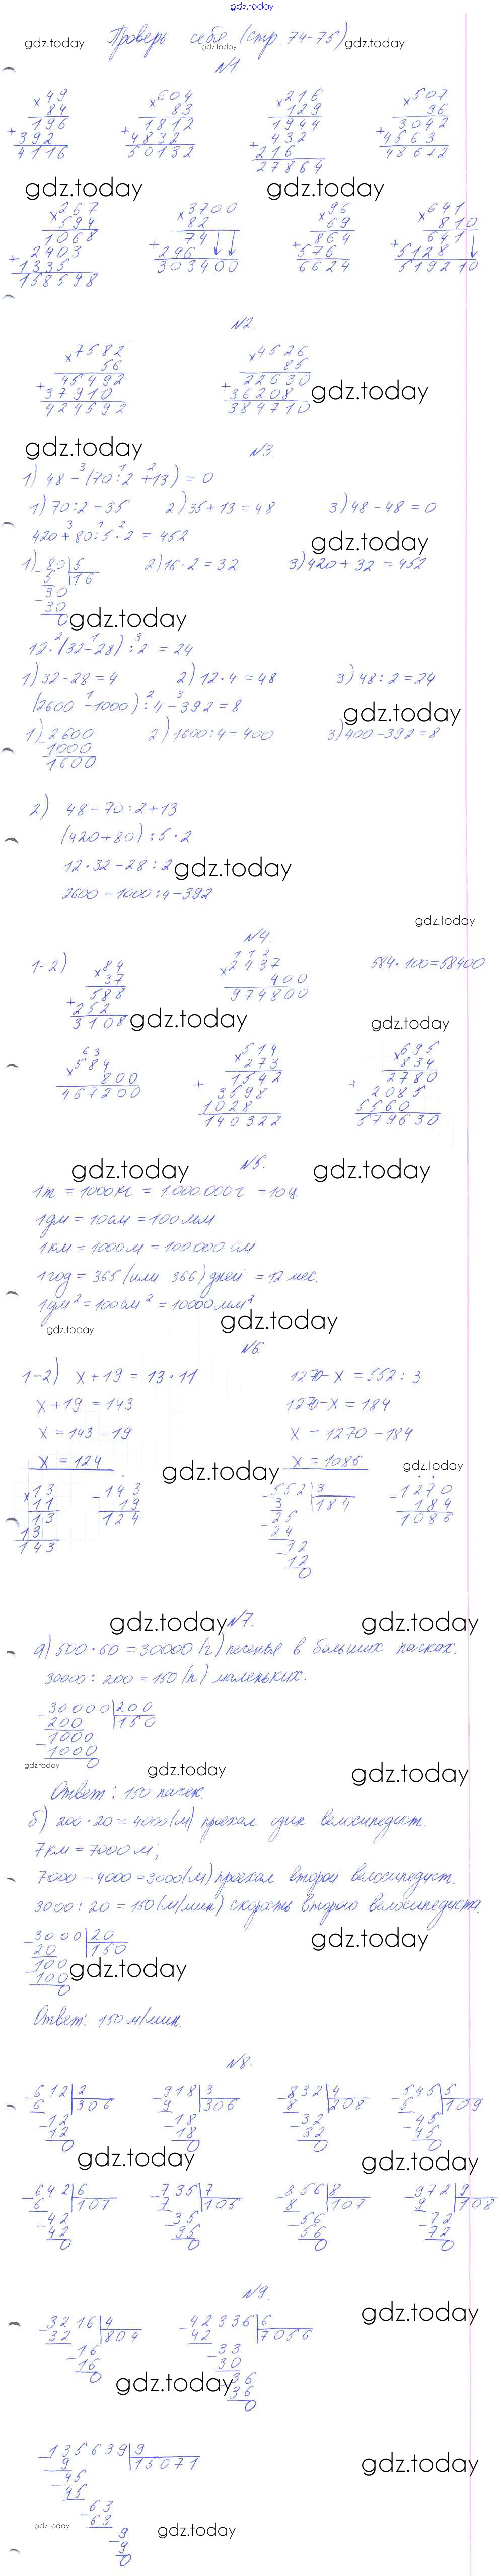 gdz.today
Проверь себя (стр. 74-75)
gdz.today gdz.today gdz.today
№1.
×49 ×604 ×216 ×507
84 83 129 96
+196 +1812 +1944 +3042
392 4832 432 4563
4116 50132 216 48672
27864
gdz.today gdz.today
×267 ×3700 ×96 ×641
594 82 69 810
1068 74 864 641
+2403 +296 +576 +5128
1335 303400 6624 519210
158598
№2.
×7582 ×4526
56 85
+45492 +22630
37910 36208
424592 384710
gdz.today
gdz.today
№3.
1) 48 - (70 : 2 + 13) = 0
1) 70 : 2 = 35 2) 35 + 13 = 48 3) 48 - 48 = 0
420 + 80 : 5 · 2 = 452
gdz.today
1) 80 | 5 2) 16 · 2 = 32 3) 420 + 32 = 452
5 16
30
30
0
gdz.today
12 · (32 - 28) : 2 = 24
1) 32 - 28 = 4 2) 12 · 4 = 48 3) 48 : 2 = 24
(2600 - 1000) : 4 - 392 = 8
gdz.today
1) 2600 2) 1600 : 4 = 400 3) 400 - 392 = 8
1000
1600
2) 48 - 70 : 2 + 13
(420 + 80) : 5 · 2
12 · 32 - 28 : 2
gdz.today
2600 - 1000 : 4 - 392
gdz.today
№4.
1-2) ×84 ×2437 584 · 100 = 58400
37 400
+588 974800
252
3108
gdz.today gdz.today
×584 ×514 ×695
800 273 834
467200 +1542 +2780
3598 2085
1028 5560
140322 579630
gdz.today gdz.today
№5.
1т = 1000 кг = 1.000.000 г = 10 ц.
1дм = 10см = 100 мм
1км = 1000 м = 100000 см
1год = 365 (или 366) дней = 12 мес.
1дм² = 100 см² = 10000 мм²
gdz.today gdz.today
№6.
1-2) х + 19 = 13 · 11 1270 - х = 552 : 3
х + 19 = 143 1270 - х = 184
х = 143 - 19 х = 1270 - 184
х = 124 х = 1086
gdz.today gdz.today
×13 -143 -552 | 3 -1270
11 19 3 184 184
13 124 25 1086
13 24
143 12
12
0
gdz.today gdz.today
№7.
а) 500 · 60 = 30000 (г) печенья в больших пачках.
30000 : 200 = 150 (п) маленьких.
-30000 | 200
200 150
-1000
1000
0
gdz.today gdz.today gdz.today
Ответ: 150 пачек.
б) 200 · 20 = 4000 (м) проехал один велосипедист.
7 км = 7000 м;
7000 - 4000 = 3000 (м) проехал второй велосипедист.
3000 : 20 = 150 (м/мин) скорость второго велосипедиста.
gdz.today
-3000 | 20
20 150
-100
100
0
gdz.today
Ответ: 150 м/мин.
№8.
-612 | 2 -918 | 3 -832 | 4 -545 | 5
6 306 9 306 8 208 5 109
-12 -18 -32 -45
12 18 32 45
0 0 0 0
gdz.today gdz.today
-642 | 6 -735 | 7 -856 | 8 -972 | 9
6 107 7 105 8 107 9 108
-42 -35 -56 -72
42 35 56 72
0 0 0 0
№9.
gdz.today
-3216 | 4 -42336 | 6
32 804 42 7056
-16 -33
16 30
0 -36
36
0
gdz.today
-135639 | 9
9 15071
-45
45
-63
63
-9
9
0
gdz.today
gdz.today gdz.today